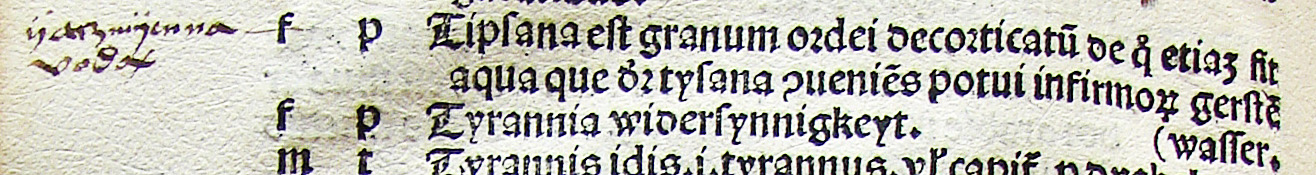 yaczmyenna
voda
f p Tipsana est granum ordei decorticatū de q̊ etiaꝫ fit
aqua que dr̄ tysana ꝯueniēs potui infirmoꝝ gerstē
f p Tyrannia widersynnigkeyt. (wasser.
m t Tyrannis idis .i. tyrannus. vl̓ capit̄ p